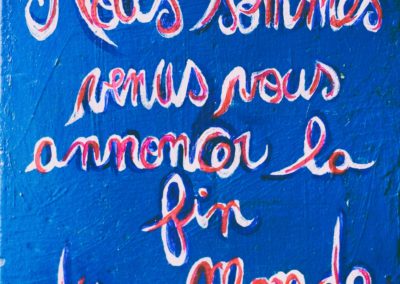 Nous sommes
venus vous
annoncer la
fin
du Monde